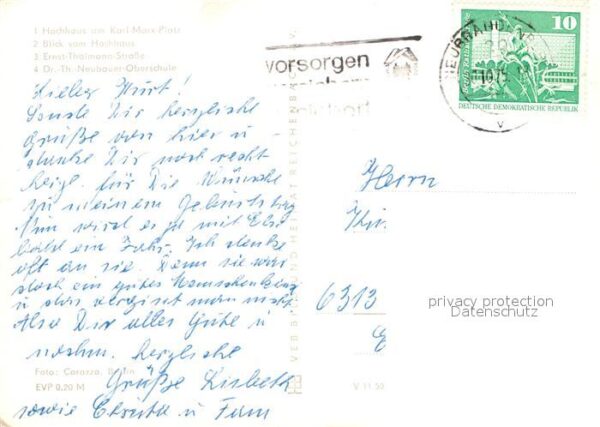 1 Hochhaus am Karl-Marx-Platz
2 Blick vom Hochhaus
3 Ernst-Thälmann-Straße
4 Dr.-Th.-Neubauer-Oberschule
Lieber Kurt!
Sende Dir herzliche
Grüße von hier u
danke Dir noch recht
herzl. für Die Wünsche
zu meinem Geburtstag
Nun wird es ja mit
bald ein Jahr. Ich denke
oft an sie. Denn sie war
doch ein gutes
u das vergisst man nicht.
Also Dir alles Gute u
nochm. herzliche
Grüße Lisbeth
sowie Christa u Fam
Foto: Corazza, Berlin
EVP 0,20 M
VEB BILD UND HEIMAT REICHENBACH
V 11 50
vorsorgen
NEUBRAND
10
DEUTSCHE DEMOKRATISCHE REPUBLIK
Herrn
6313
privacy protection
Datenschutz